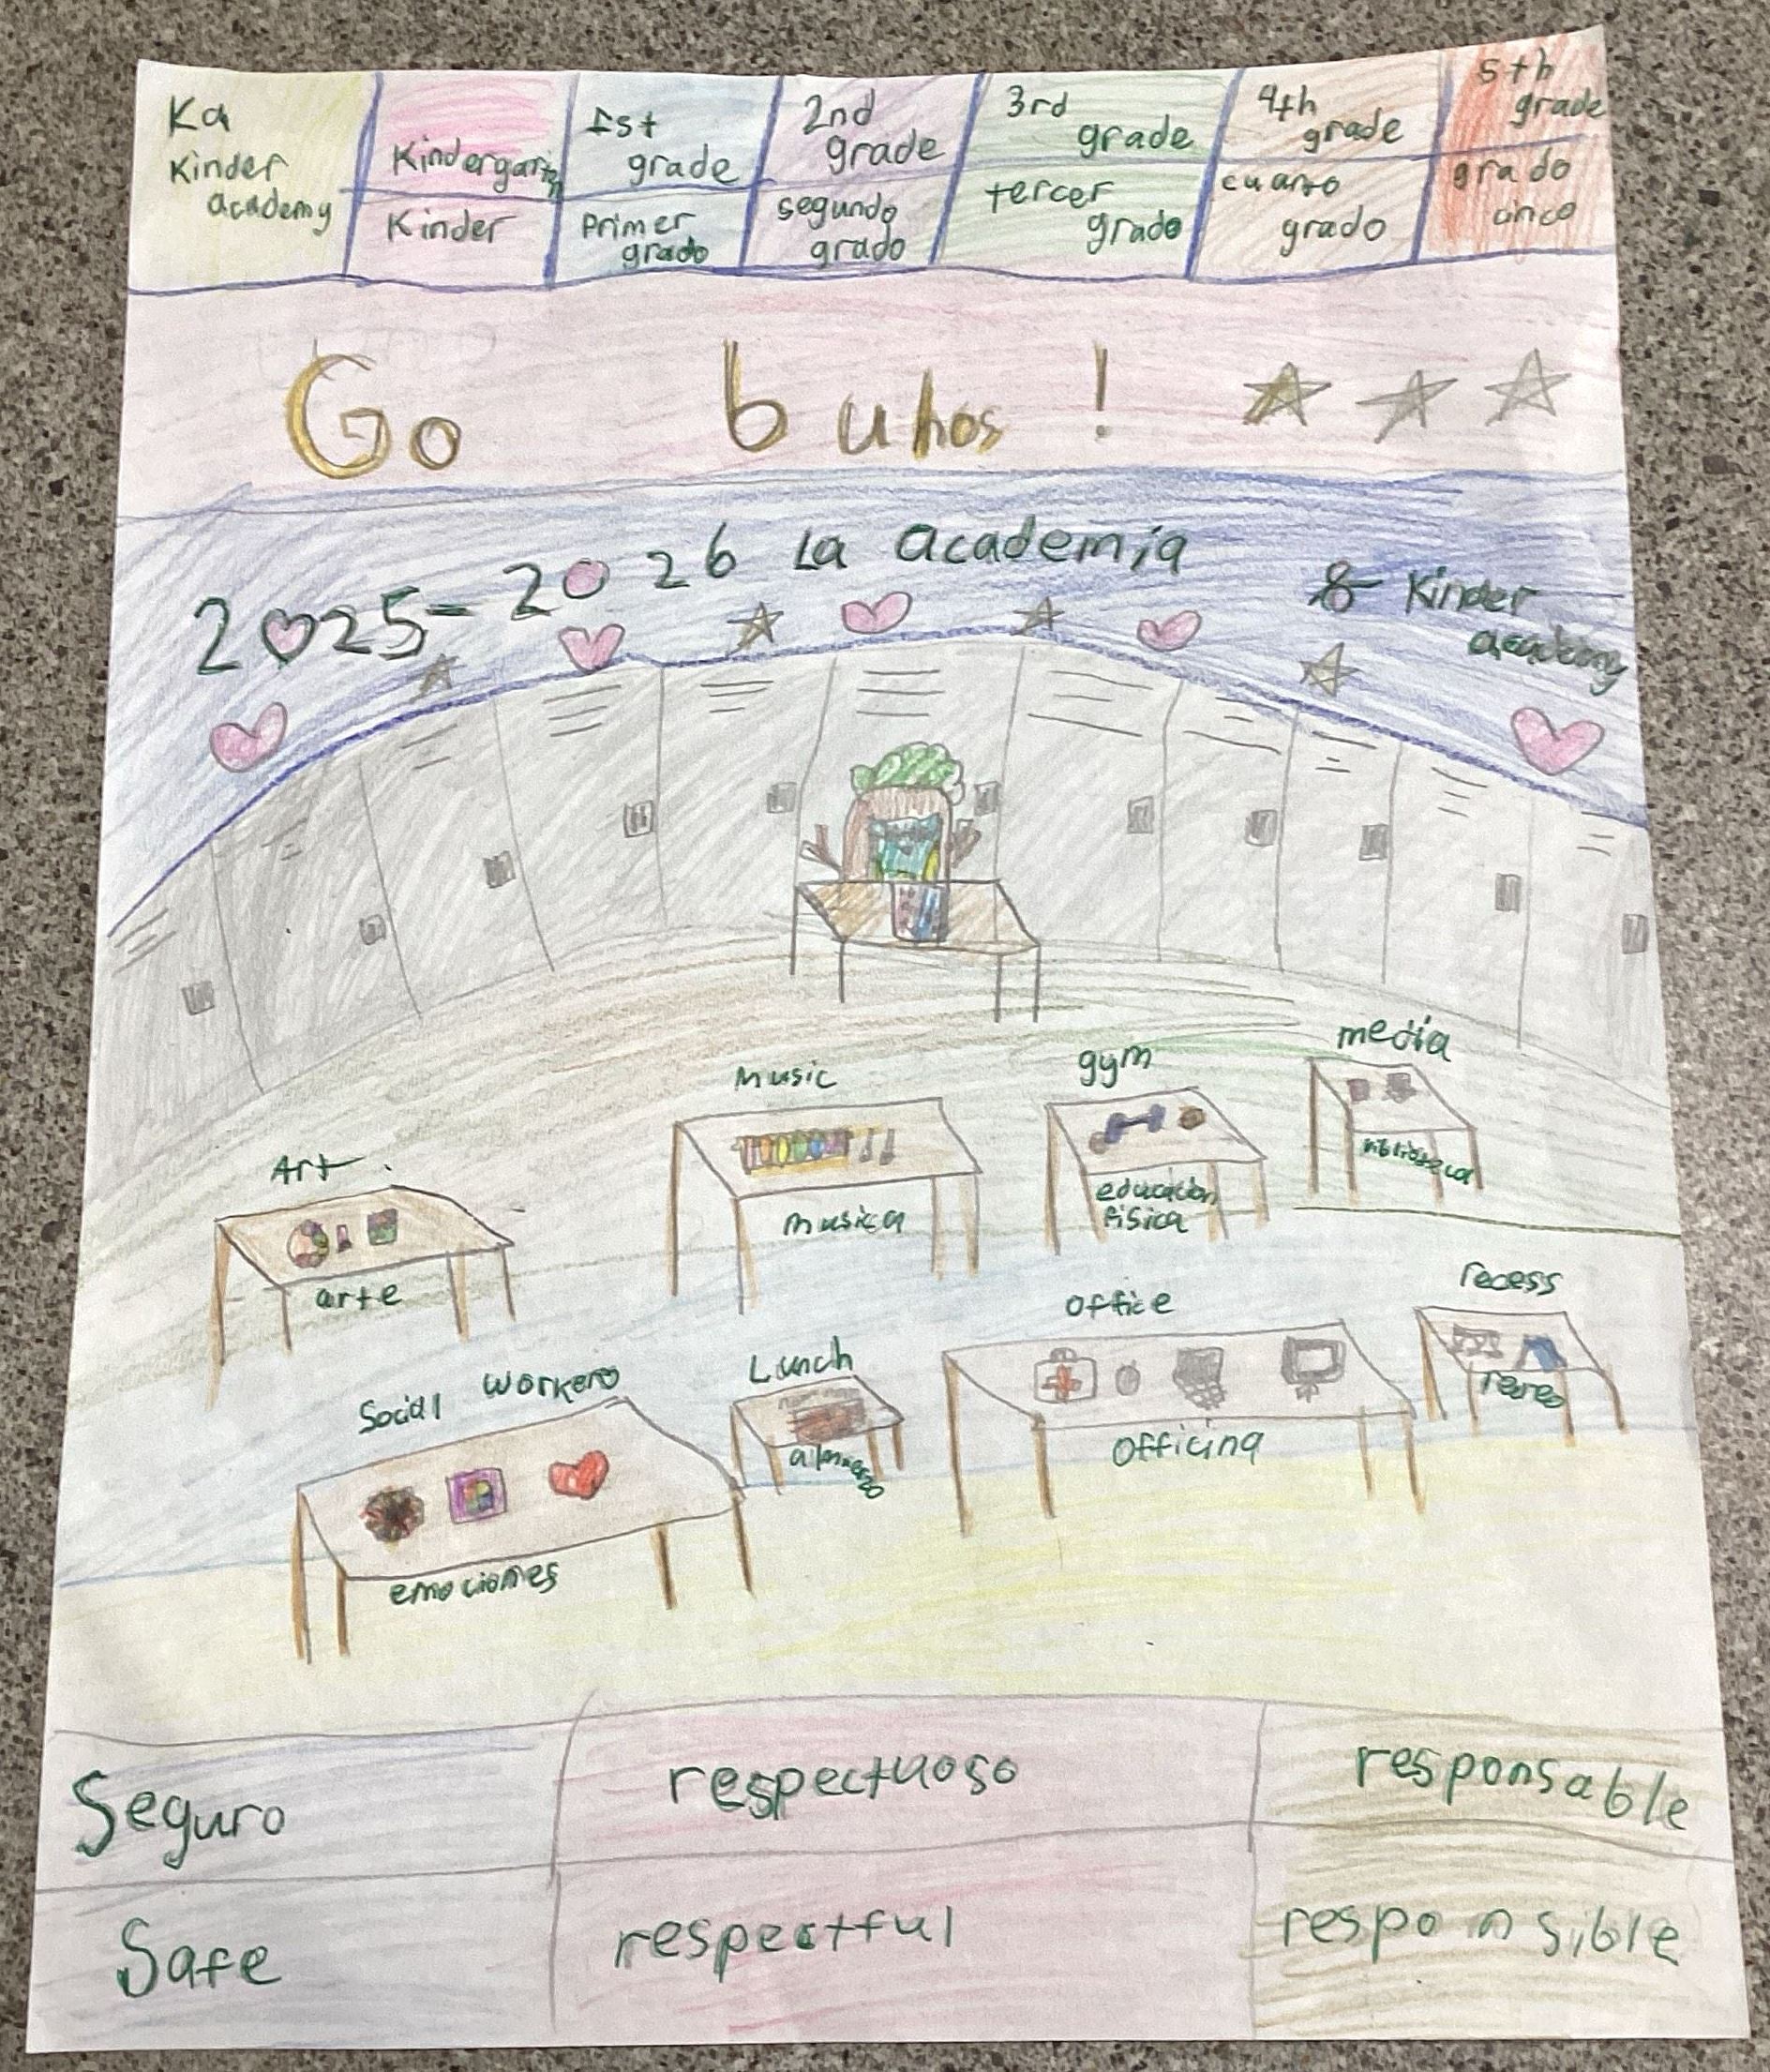 Ka
Kinder
academy
Kindergarten
Kinder
1st
grade
Primer
grado
2nd
grade
segundo
grado
3rd
grade
tercer
grado
4th
grade
cuarto
grado
5th
grade
grado
cinco
Go buhos!
2025-2026 La academia
& Kinder
academy
Music
gym
media
musica
educacion
fisica
biblioteca
Art
arte
office
recess
officina
recreo
Social workers
Lunch
almuerzo
emociones
Seguro
respectuoso
responsable
Safe
respectful
responsible